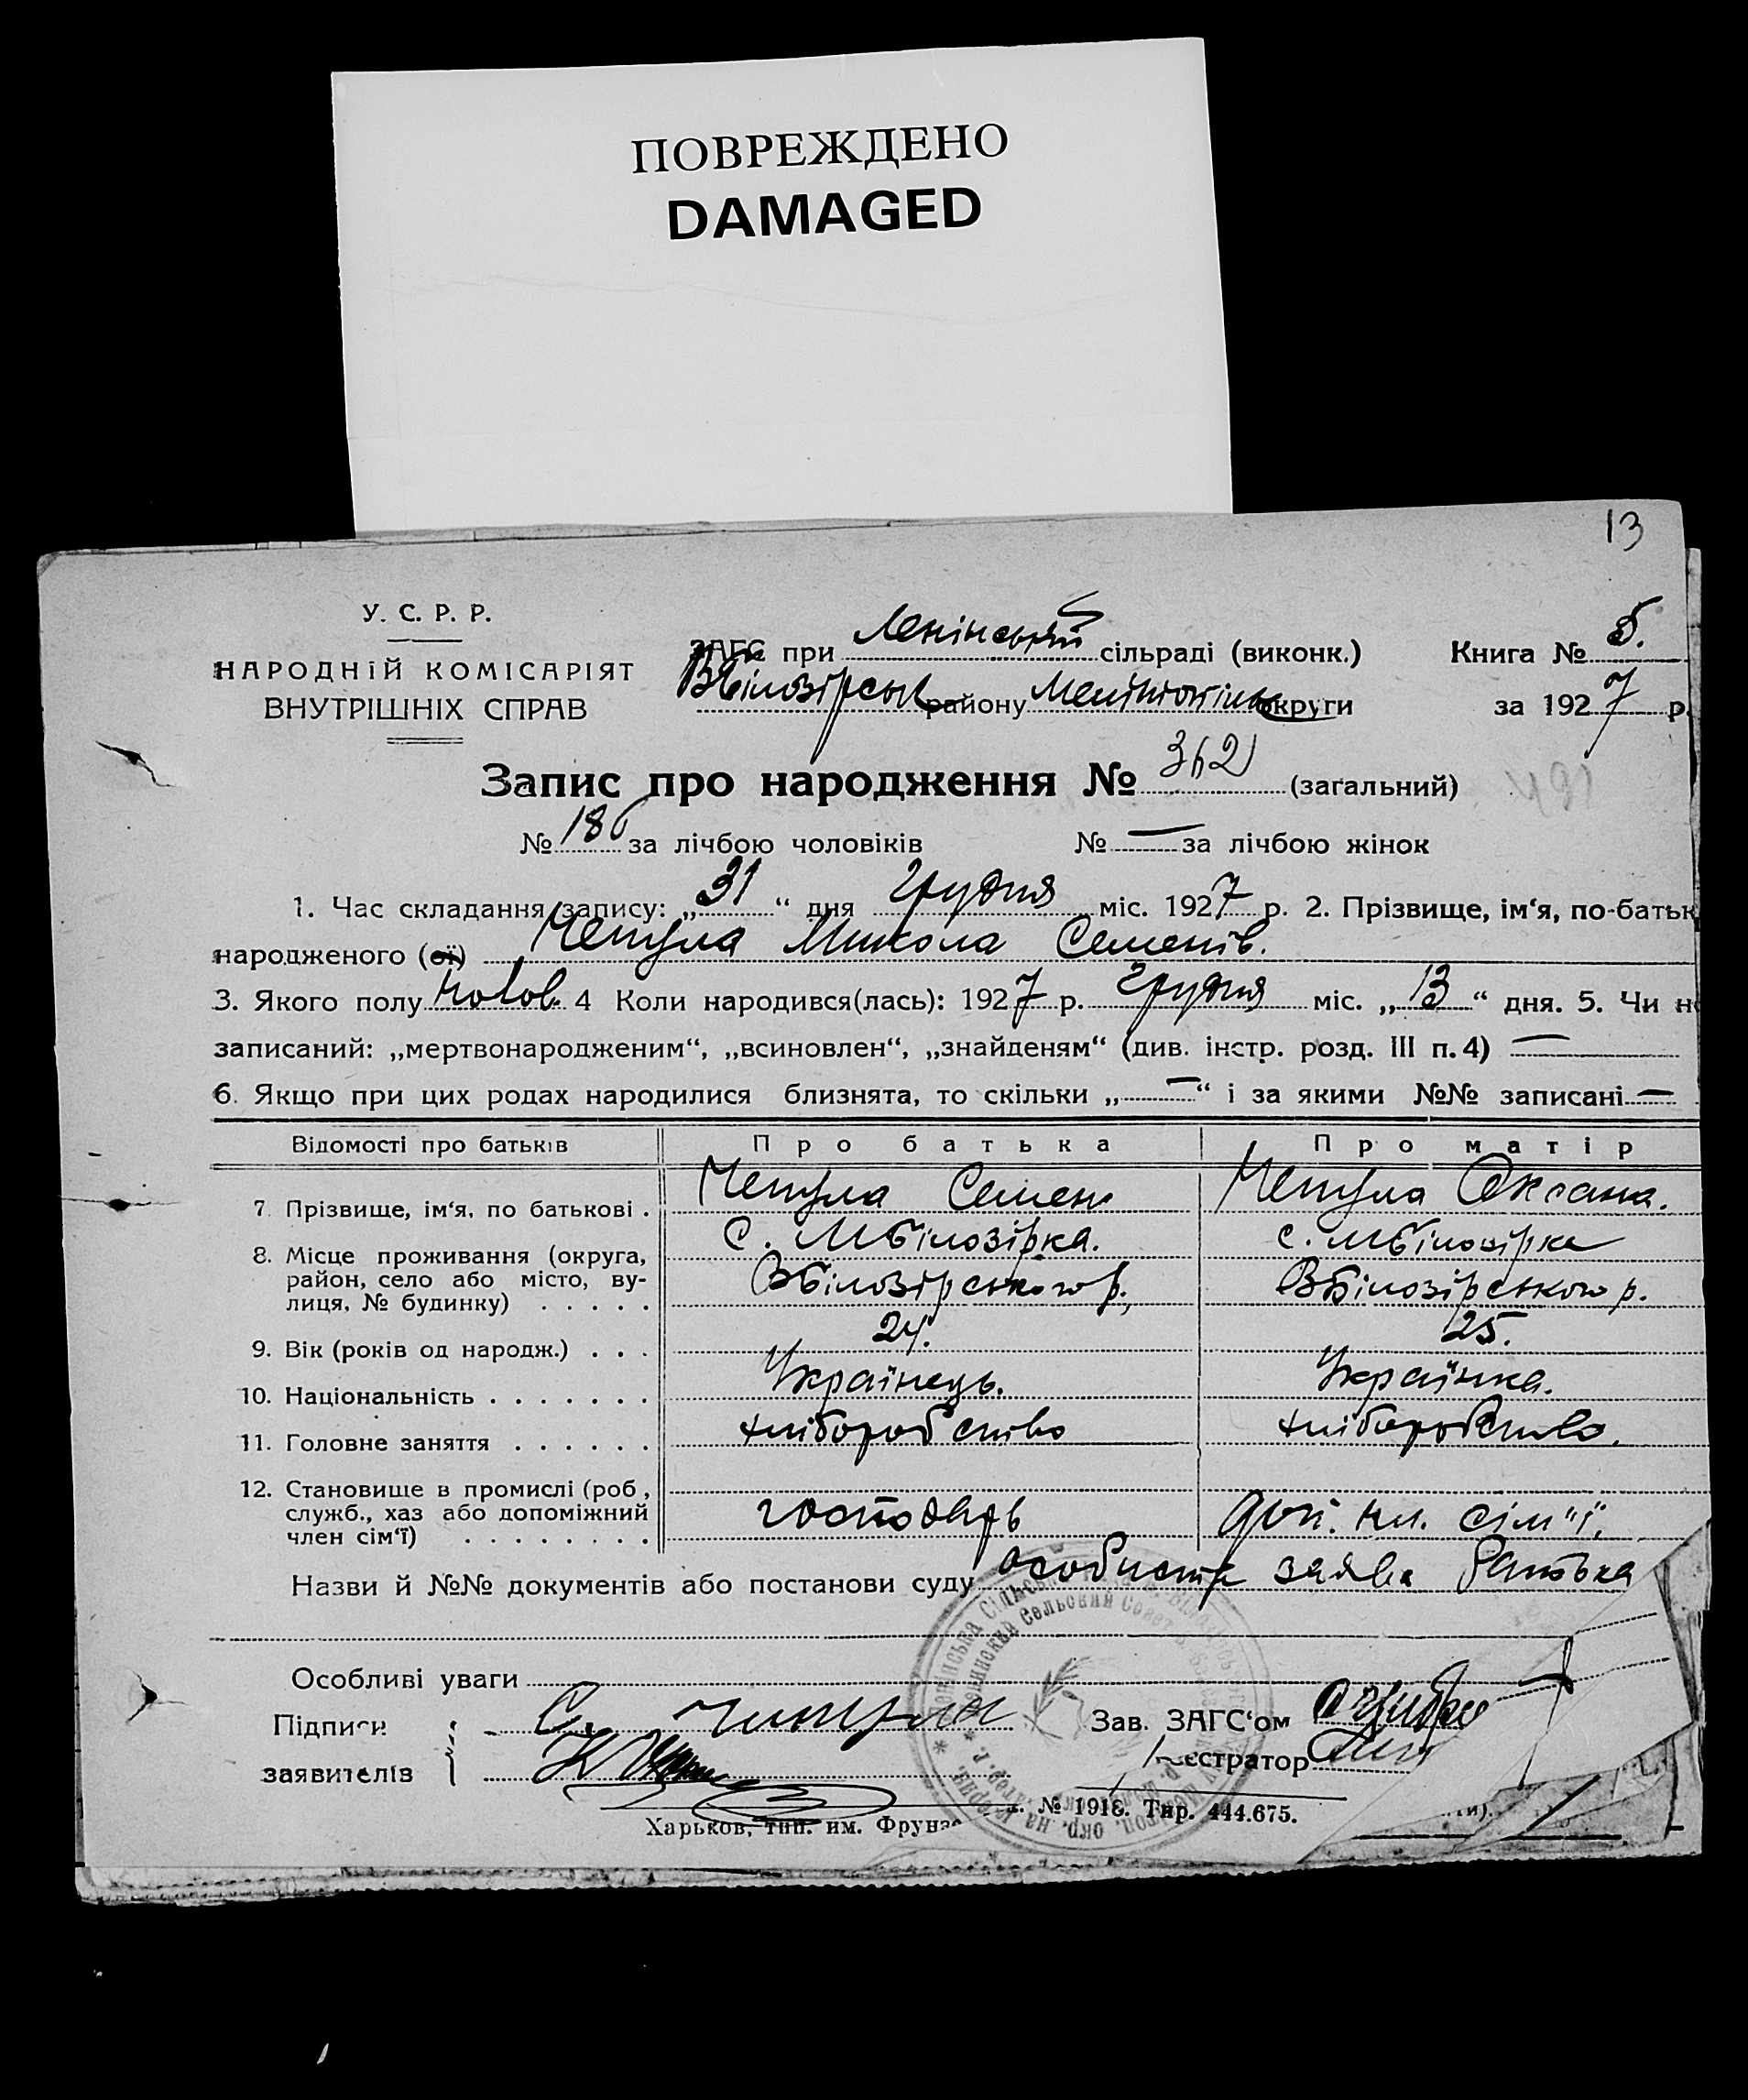 ПОВРЕЖДЕНО
DAMAGED
13
У. С. Р. Р.
НАРОДНІЙ КОМІСАРІЯТ
ВНУТРІШНІХ СПРАВ
ЗАГС при Ленінській сільраді (виконк.) Книга № 5.
ВБілозірськ району Мелітопільськ округи за 1927 р.
Запис про народження № 362 (загальний)
№ 186 за лічбою чоловіків № — за лічбою жінок
1. Час складання запису: „31“ дня грудня міс. 1927 р. 2. Прізвище, ім‘я, по-батьк
народженого (ої) Чепула Микола Семенів.
3. Якого полу чолов. 4 Коли народився(лась): 1927 р. грудня міс. „13“ дня. 5. Чи н
записаний: „мертвонародженим“, „всиновлен“, „знайденям“ (див. інстр. розд. III п. 4) —
6. Якщо при цих родах народилися близнята, то скільки „—“ і за якими №№ записані —
Відомості про батьків Про батька Про матір
7. Прізвище, ім‘я, по батькові . Чепула Семен Чепула Оксана.
8. Місце проживання (округа, район, село або місто, вулиця, № будинку) . . . . . с. МБілозірка. ВБілозірського р., с. МБілозірка ВБілозірського р.
9. Вік (років од народж.) . . . 24. 25.
10. Національність . . . . . . . Українець. Українка.
11. Головне заняття . . . . . . хліборобство хліборобство.
12. Становище в промислі (роб., служб., хаз або допоміжний член сім‘ї) . . . . . . . . господарь доп. чл. сім"ї.
Назви й №№ документів або постанови суду особиста заява батька
Особливі уваги
Підписи С. Чипула Зав. ЗАГС‘ом
заявителів єстратор
№ 1918. Тир. 444.675.
Харьков, тип. им. Фрунзе